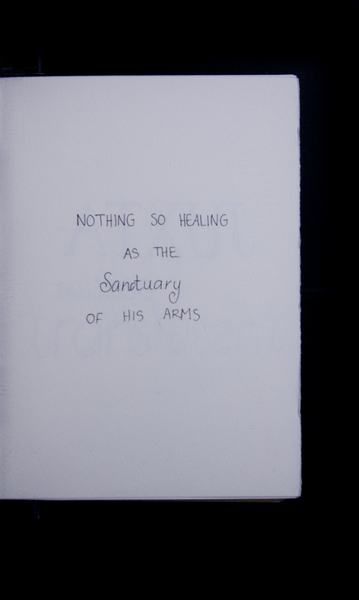 NOTHING SO HEALING
AS THE
Sanctuary
OF HIS ARMS